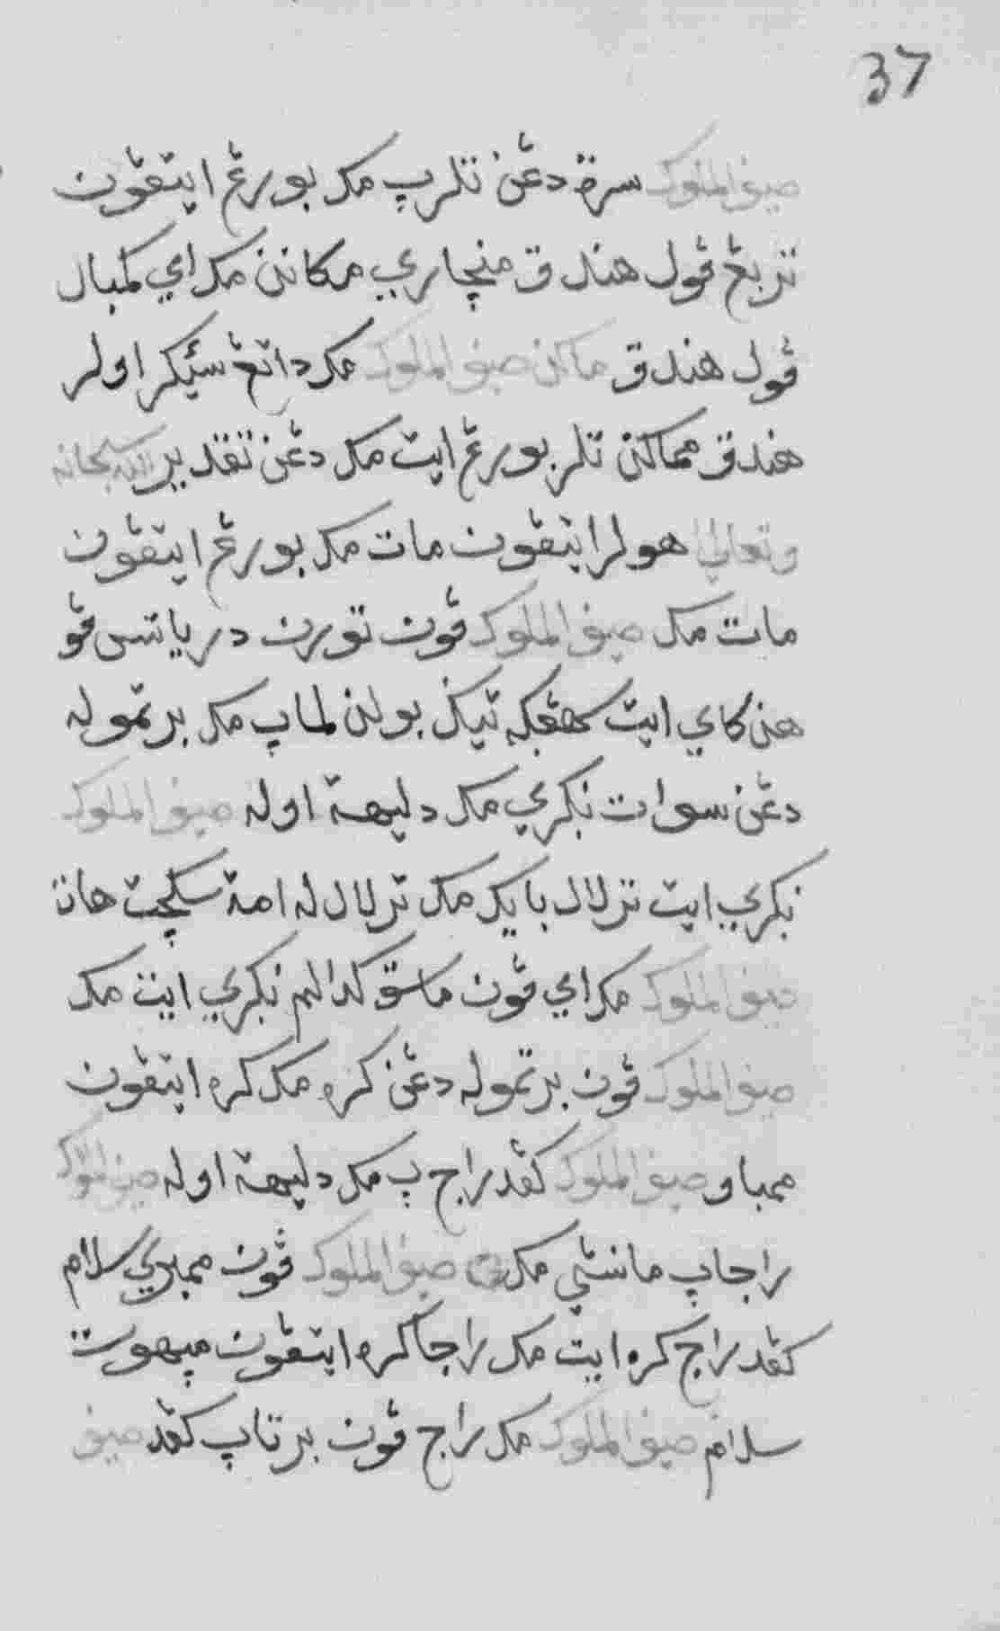 37
صيف الملوك سرة دڠن تلرڽ مک بورڠ ايتڤون
تربڠ ڤول هندق منچاري مکانن مک اي کمبال
ڤول هندق ماکن صيف الملوك مک داتڠ سئيکر اولر
هندق مماکن تلر بورڠ ايت مک دڠن تقدير الله سبحانه
وتعالى اولر ايتڤون مات مک بورڠ ايتڤون
مات مک صيف الملوك ڤون تورن در ياتس ڤو
هن کاي ايت سهڠک تيݢ بولن لماڽ مک برتموله
دڠن سوات نݢري مک دليهة اوله صيف الملوك
نݢري ايت ترلال بايک مک ترلال له امة سکچت هات
صيف الملوك مک اي ڤون ماسق کدالم نݢري ايت مک
صيف الملوك ڤون برتموله دڠن کره مک کره ايتڤون
ممباو صيف الملوك کڤد راج ڽ مک دليهة اوله صيف الملوك
راجاڽ مانسي مک صيف الملوك ڤون ممبري سلام
کڤد راج کره ايت مک راجا کره ايتڤون ميهوت
سلام صيف الملوك مک راج ڤون برتاڽ کڤد صيف